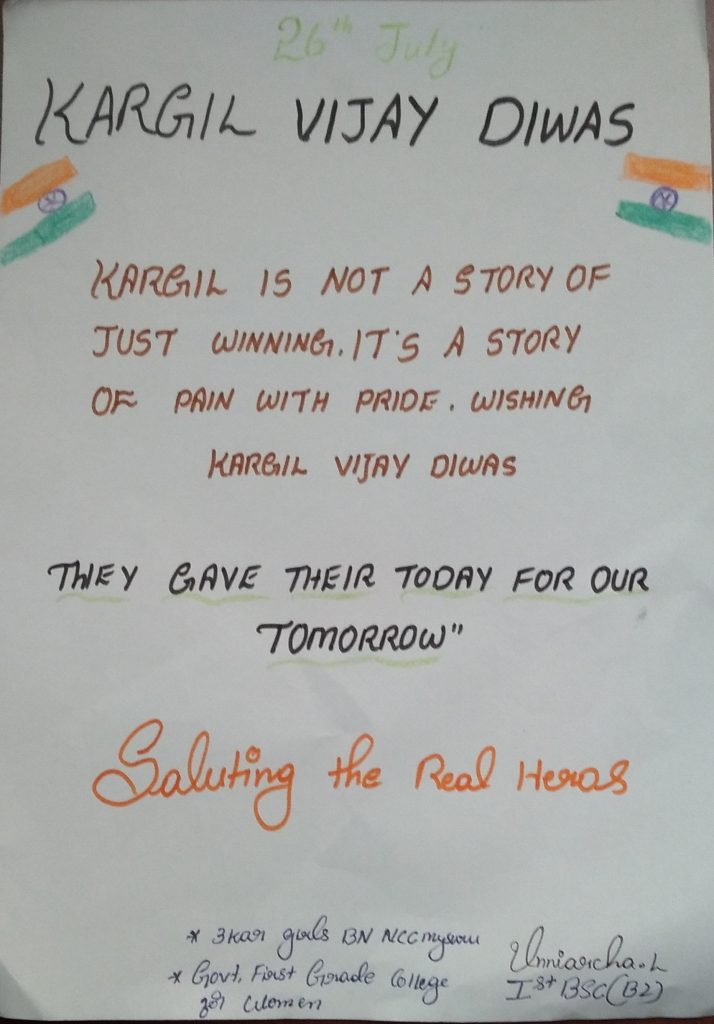 26th July
KARGIL VIJAY DIWAS
KARGIL IS NOT A STORY OF
JUST WINNING. IT'S A STORY
OF PAIN WITH PRIDE. WISHING
KARGIL VIJAY DIWAS
THEY GAVE THEIR TODAY FOR OUR
TOMORROW"
Saluting the Real Heros
* 3kar girls BN NCC mysuru
* Govt. First Grade College
for women
Unniarcha. L
Ist BSC (B2)